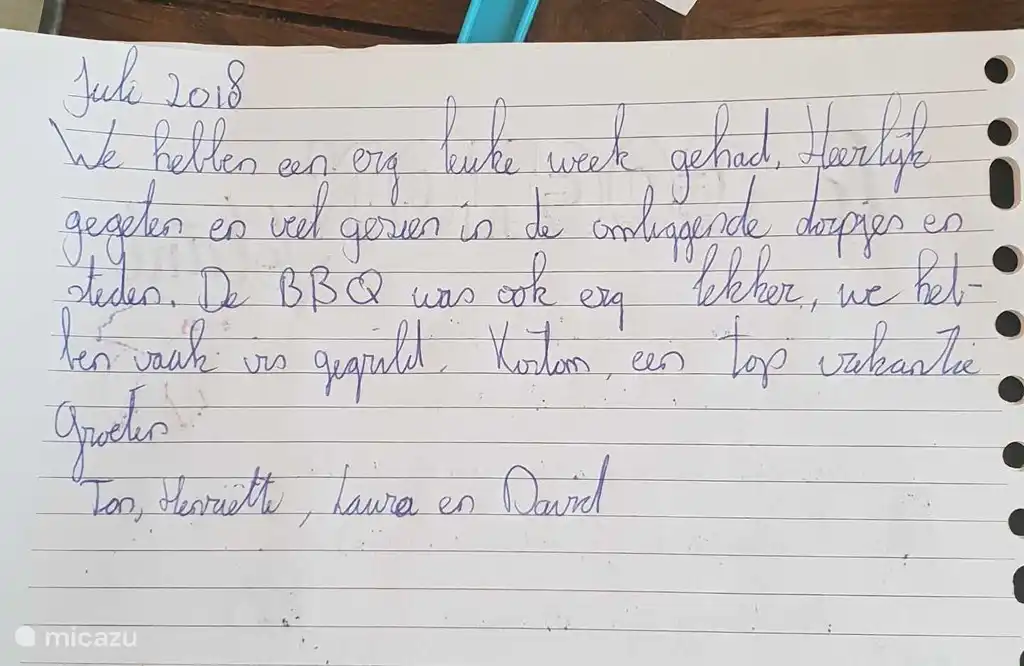 Juli 2018
We hebben een erg leuke week gehad. Heerlijk
gegeten en veel gezien in de omliggende dorpjes en
steden. De BBQ was ook erg lekker, we heb-
ben vaak vis gegrild. Kortom, een top vakantie
Groeten
Ton, Henriëtte, Laura en David
micazu